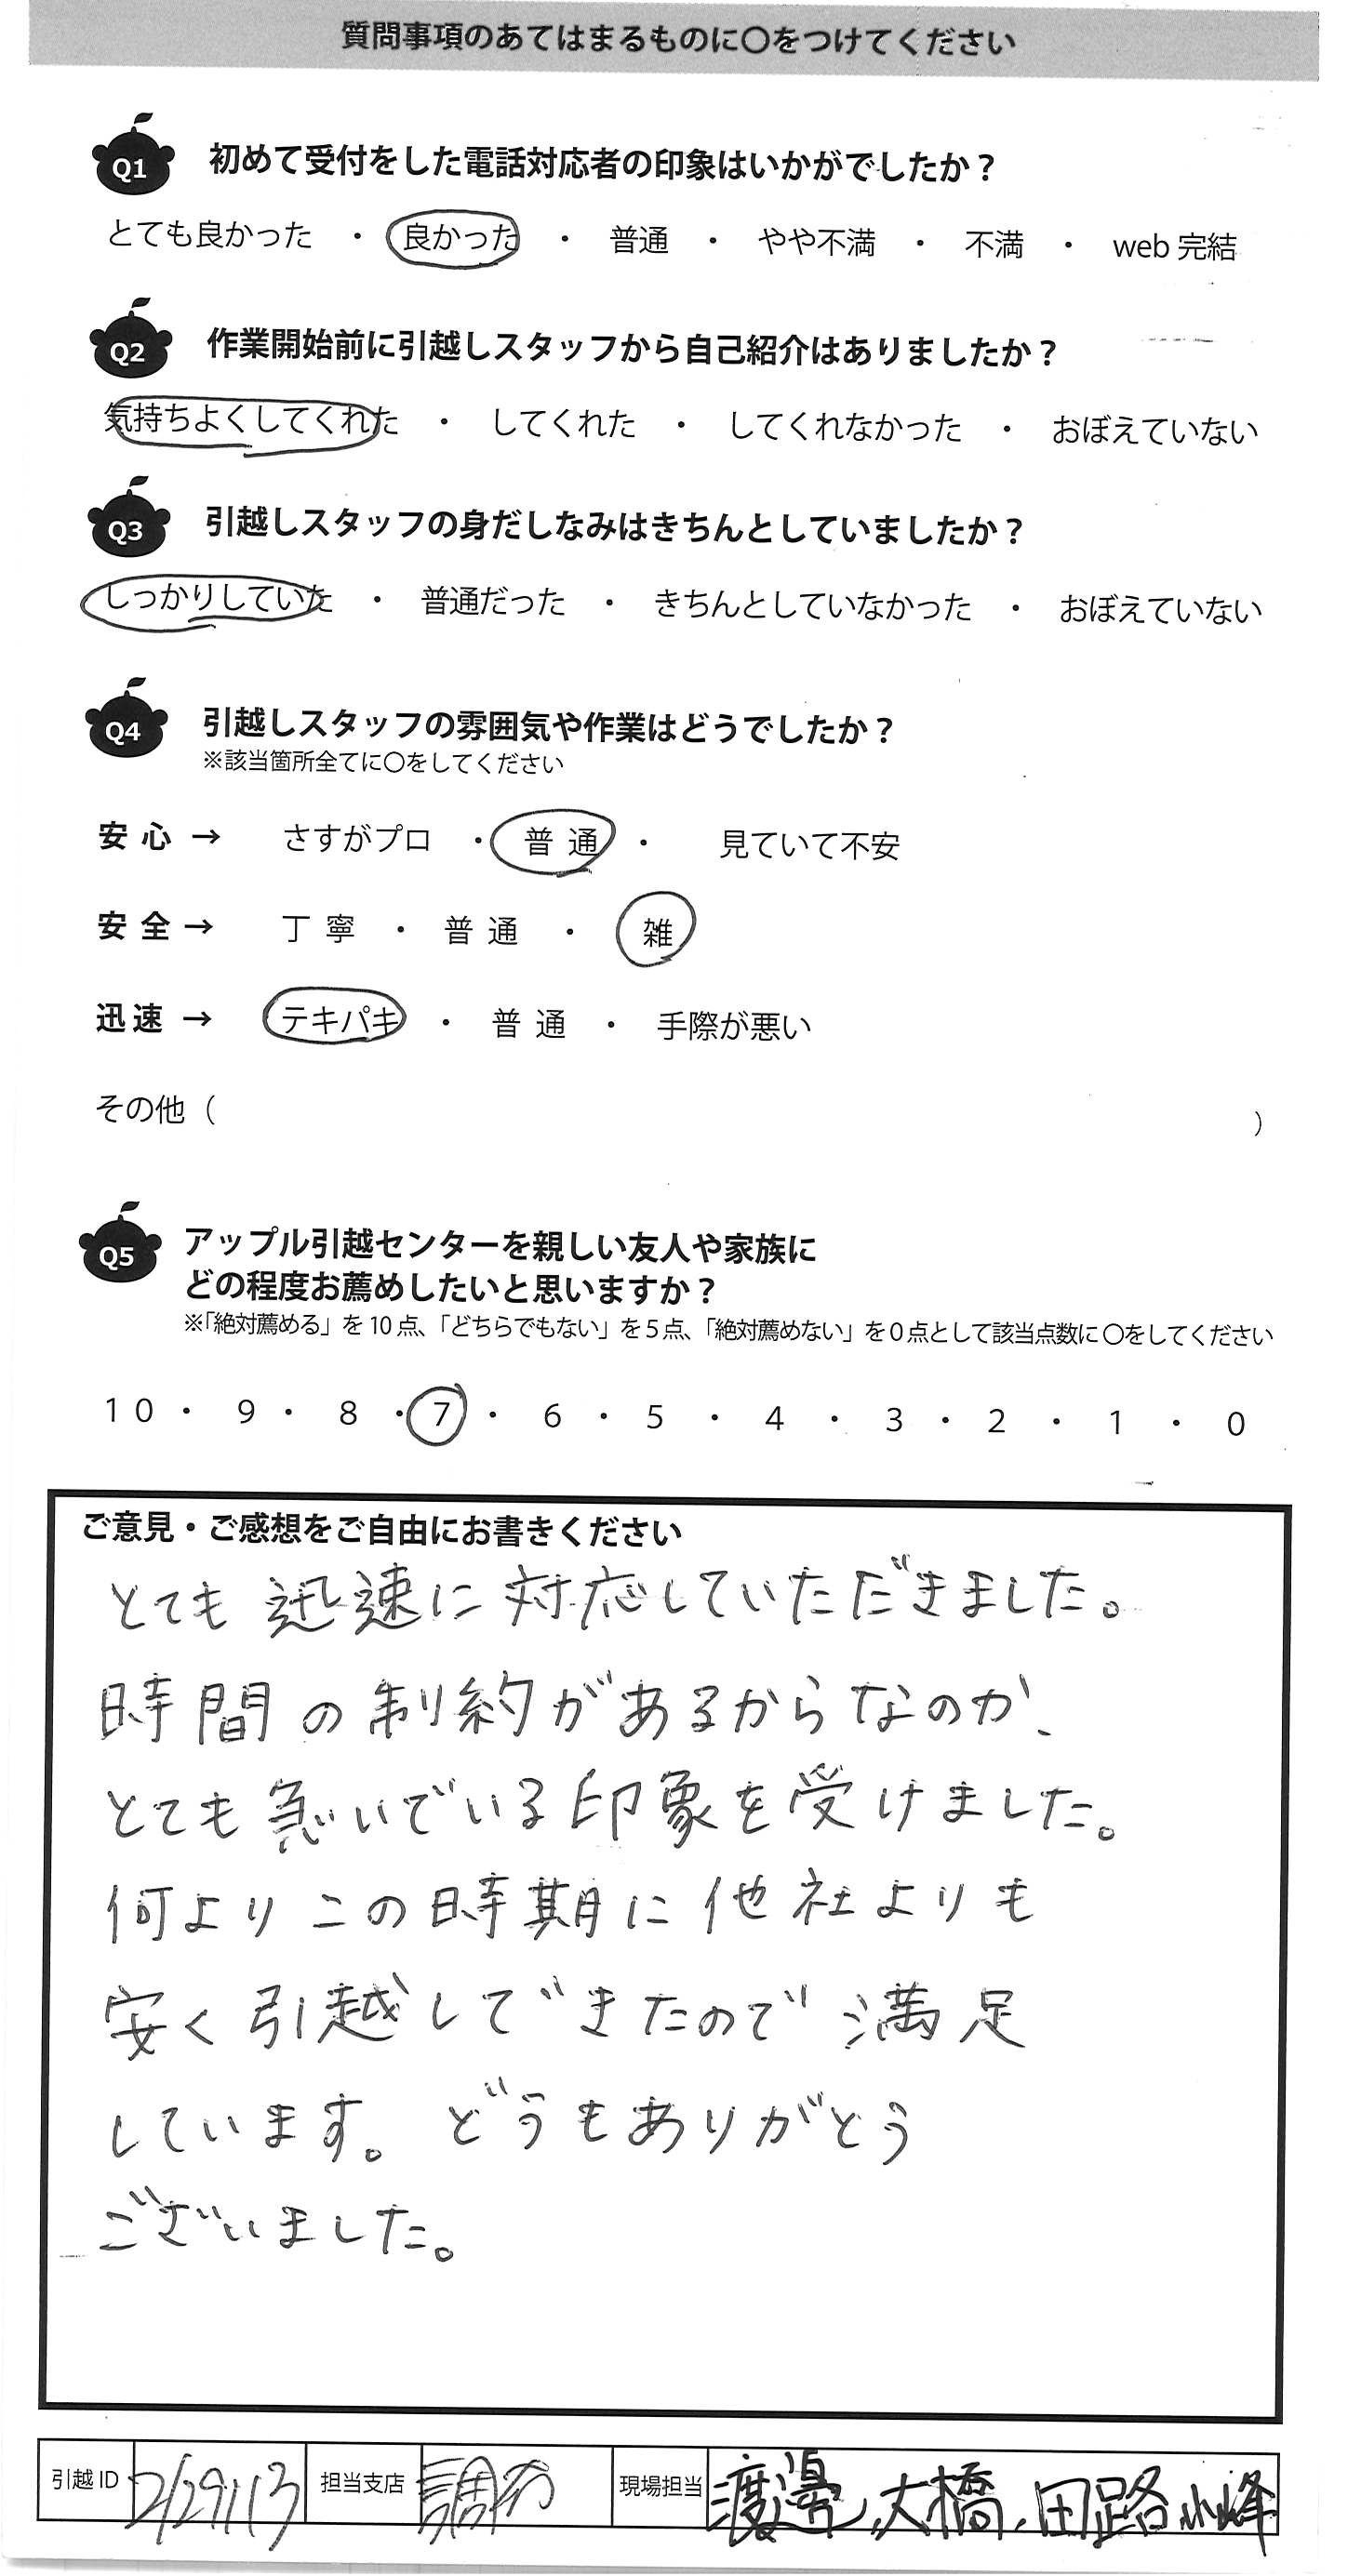 質問事項のあてはまるものに〇をつけてください
Q1 初めて受付をした電話対応者の印象はいかがでしたか？
とても良かった ・ 良かった ・ 普通 ・ やや不満 ・ 不満 ・ web 完結
Q2 作業開始前に引越しスタッフから自己紹介はありましたか？
気持ちよくしてくれた ・ してくれた ・ してくれなかった ・ おぼえていない
Q3 引越しスタッフの身だしなみはきちんとしていましたか？
しっかりしていた ・ 普通だった ・ きちんとしていなかった ・ おぼえていない
Q4 引越しスタッフの雰囲気や作業はどうでしたか？
※該当箇所全てに〇をしてください
安心 → さすがプロ ・ 普通 ・ 見ていて不安
安全 → 丁寧 ・ 普通 ・ 雑
迅速 → テキパキ ・ 普通 ・ 手際が悪い
その他（ ）
Q5 アップル引越センターを親しい友人や家族に
どの程度お薦めしたいと思いますか？
※「絶対薦める」を10点、「どちらでもない」を5点、「絶対薦めない」を0点として該当点数に〇をしてください
10 ・ 9 ・ 8 ・ 7 ・ 6 ・ 5 ・ 4 ・ 3 ・ 2 ・ 1 ・ 0
ご意見・ご感想をご自由にお書きください
とても迅速に対応していただきました。
時間の制約があるからなのか、
とても急いでいる印象を受けました。
何よりこの時期に他社よりも
安く引越しできたので満足
しています。どうもありがとう
ございました。
引越ID 担当支店 調布 現場担当 渡邊、大橋、田路、小峰